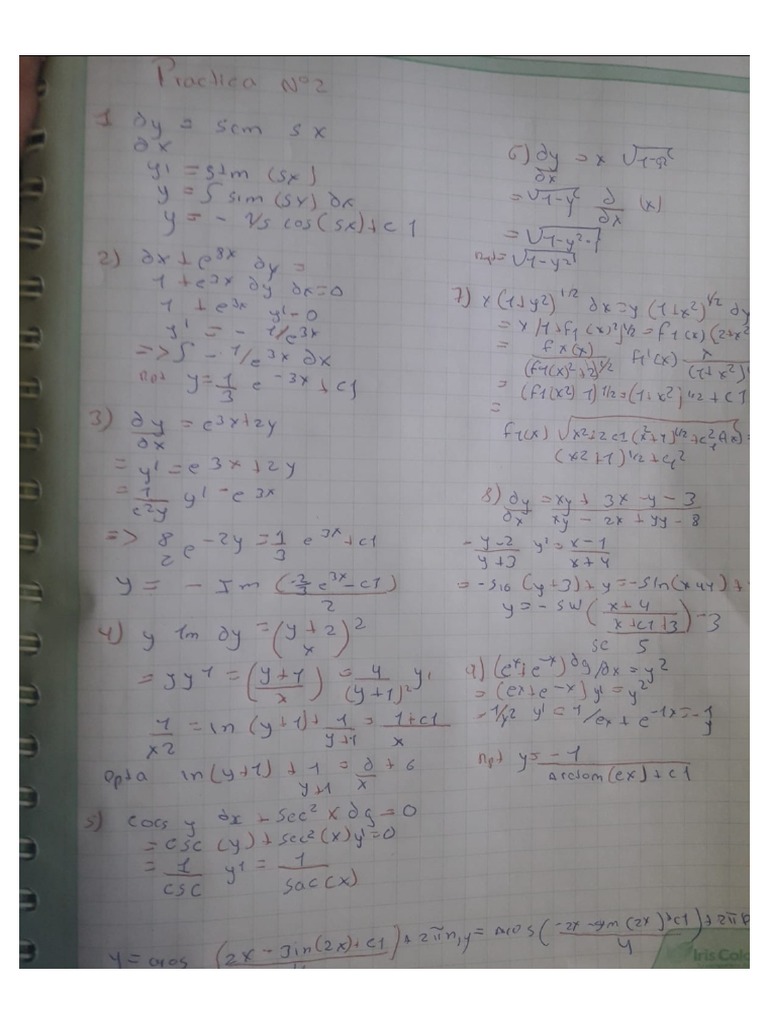 Practica Nº2
1 ∂y = sem 5x
∂x
y' = sim (5x)
y = ∫ sim (5x) ∂x
y = - 1/5 cos (5x) + c1
2) ∂x + e^3x ∂y =
1 + e^3x ∂y ∂x = 0
1 + e^3x y' - 0
y' = - 1/e^3x
=> ∫ - 1/e^3x ∂x
y = 1/3 e^-3x + c1
3) ∂y/∂x = e^3x+2y
= y' = e^3x+2y
= 1/e^2y y' - e^3x
=> 8/2 e^-2y = 1/3 e^3x + c1
y = - Im (-2/3 e^3x - c1)/2
4) y lm ∂y = (y+2/x)^2
= yy' = (y+1/x) = 4/(y+1)^2 y'
1/x2 = ln (y+1) + 1/y+1 = 1+c1/x
ln(y+1) + 1/y+1 = ∂/x + 6
5) cocs y ∂x + sec^2 x ∂y = 0
= csc (y) + sec^2 (x) y' = 0
= 1/csc y' = 1/sac(x)
y = arcos (2x - sin(2x) + c1) + 2πn, y = arcos (-2x - sin(2x) + c1)/4 + 2π
6) ∂y/∂x = x √1-y^2
= √1-y^2 ∂/∂x (x)
= √1-y^2 · 1
= √1-y^2
7) x(1+y^2)^1/2 ∂x = y (1+x^2)^1/2 ∂y
= x (1+f1(x)^2)^1/2 = f1(x) (2+x^2
= fx(x)/(f1(x)^2+1)^1/2 f1'(x) x/(1+x^2)
= (f1(x^2) 1)^1/2 = (1+x^2)^1/2 + c1
=
f1(x) √x^2+2c1(x^2+1)^1/2+c1^2
(x2+1)^1/2 + c1^2
8) ∂y/∂x = xy + 3x - y - 3/xy - 2x + yy - 8
- y-2/y+3 y' = x-1/x+4
= -5ln (y+3) + y = -5ln(x+4) +
y = -5W (x+4/x+c1+3) - 3
5e 5
9) (e^x + e^-x) ∂y/∂x = y^2
= (ex + e^-x) y' = y^2
- 1/y^2 y' = 1/ex + e^-1x = - 1/y
y = -1/arctom (ex) + c1
Iris Colo